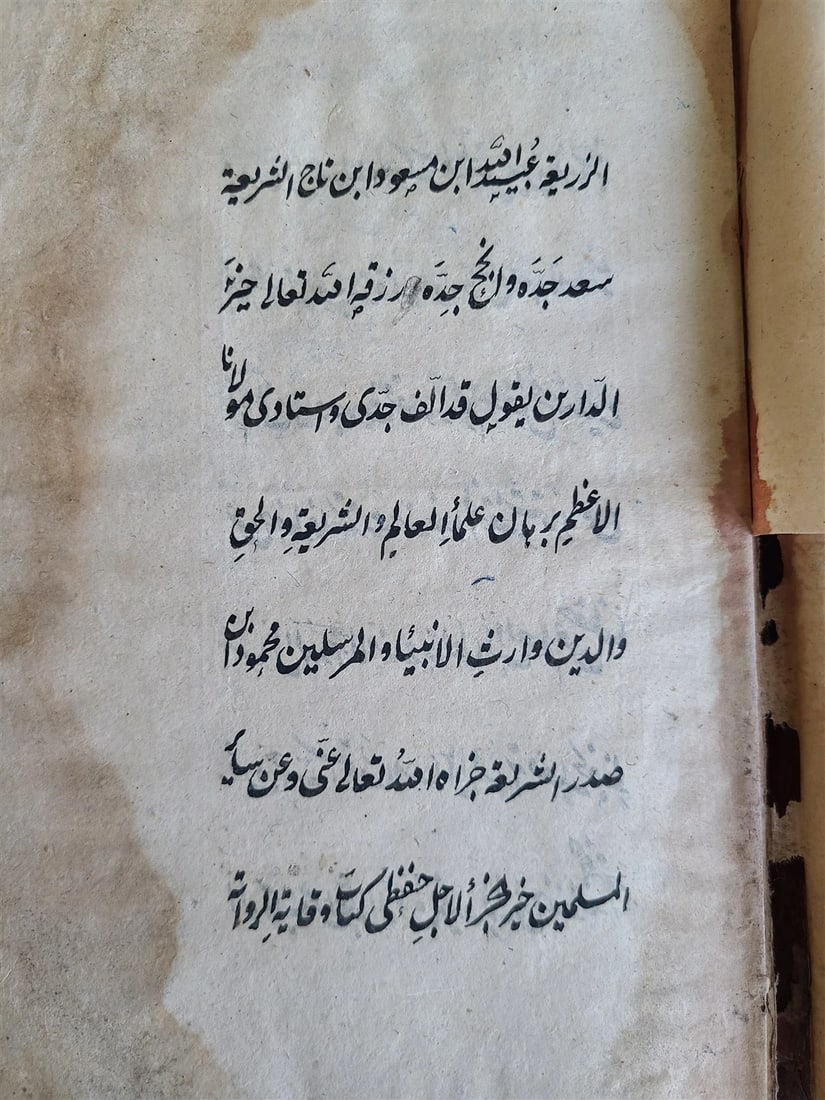 الزريعة عُبيد الله ابن مسعود ابن تاج الشريعة
سعد جَدَّه وانجح جِدَّه رزقه الله تعالى خيرَ
الدّارين يقول قد الّف جدّى واستادى مولانا
الاعظمِ برهان علمأِ العالمِ والشريعةِ والحقِ
والدين وارثِ الانبئا والمرسلين محمود ابن
صدر الشريعة جزاه اللهُ تعالى عنّى وعن سایٔر
المسلمين خير الجزأ لاجلِ حفظى كتاب وقاية الرواية